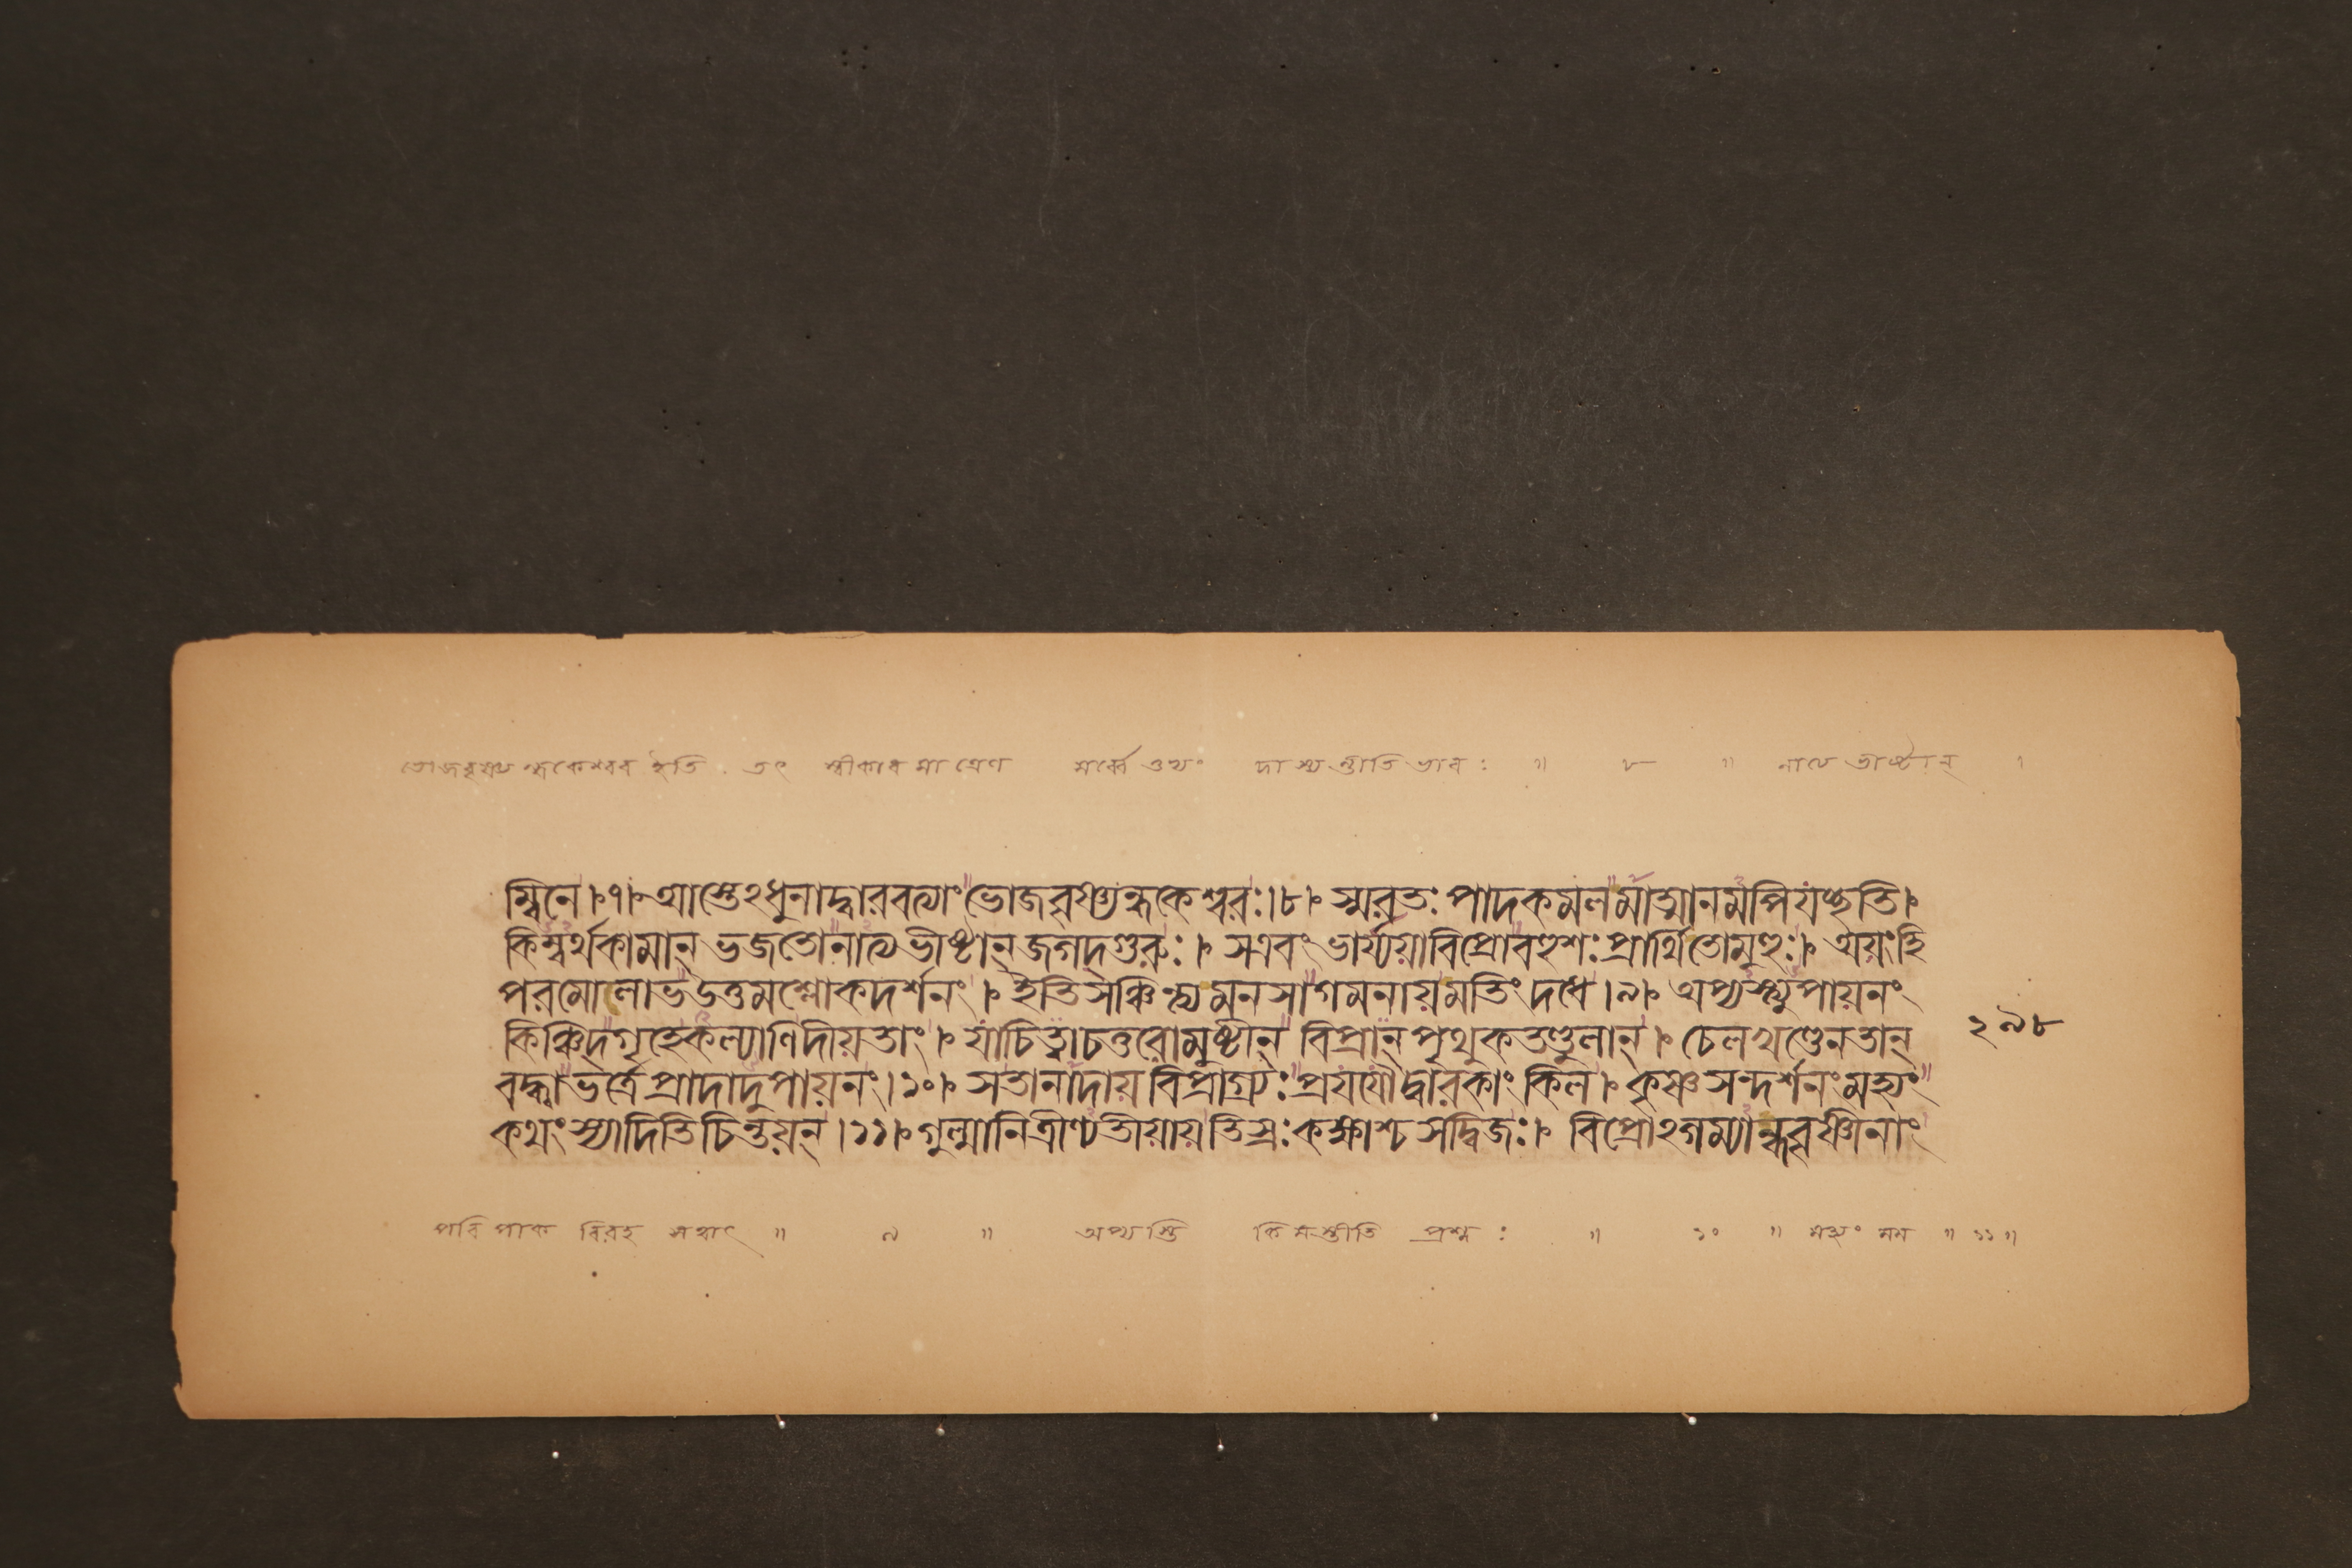 ভোজবৃষ্ণ্যন্ধকেশ্বর ইতি তৎ স্বীকার মাত্রেণ সর্ব্বেঽপ্যং দাস্যন্তীতি ভাবঃ ॥ ৮ ॥ নাত্যভীষ্টান্ ।
ম্বিনে।৭। আস্তেঽধুনাদ্বারবত্যাং ভোজবৃষ্ণ্যন্ধকেশ্বরঃ।৮। স্মরতঃ পাদকমলমাত্মানমপিযচ্ছতি।
কিম্বর্থকামান্ ভজতোনাত্যভীষ্টান্জগদ্গুরুঃ। সএবং ভার্য্যয়াবিপ্রোবহুশঃপ্রার্থিতোমুহুঃ। অয়ংহি
পরমোলাভউত্তমশ্লোকদর্শনং। ইতিসঞ্চিন্ত্যমনসাগমনায়মতিংদধে।৯। অপ্যস্ত্যুপায়নং
কিঞ্চিদ্গৃহেকল্যাণিদীয়তাং। যাচিত্বাচতুরোমুষ্টীন্ বিপ্রান্পৃথুকতণ্ডুলান্। চেলখণ্ডেনতান্
বদ্ধ্বাভর্ত্রেপ্রাদাদুপায়নং।১০। সতানাদায়বিপ্রাগ্র্যঃপ্রযযৌদ্বারকাং কিল। কৃষ্ণসন্দর্শনংমহ্যং
কথংস্যাদিতিচিন্তয়ন্।১১। গুল্মানিত্রীণ্যতীয়ায়তিস্রঃকক্ষাশ্চসদ্বিজঃ। বিপ্রোঽগম্যান্ধবৃষ্ণীনাং
২৯৮
পরিপাক বিরহ সহাৎ ॥ ৯ ॥ অপ্যস্তি কিমস্তীতি প্রশ্নঃ ॥ ১০ ॥ মহ্যং মম ॥ ১১ ॥